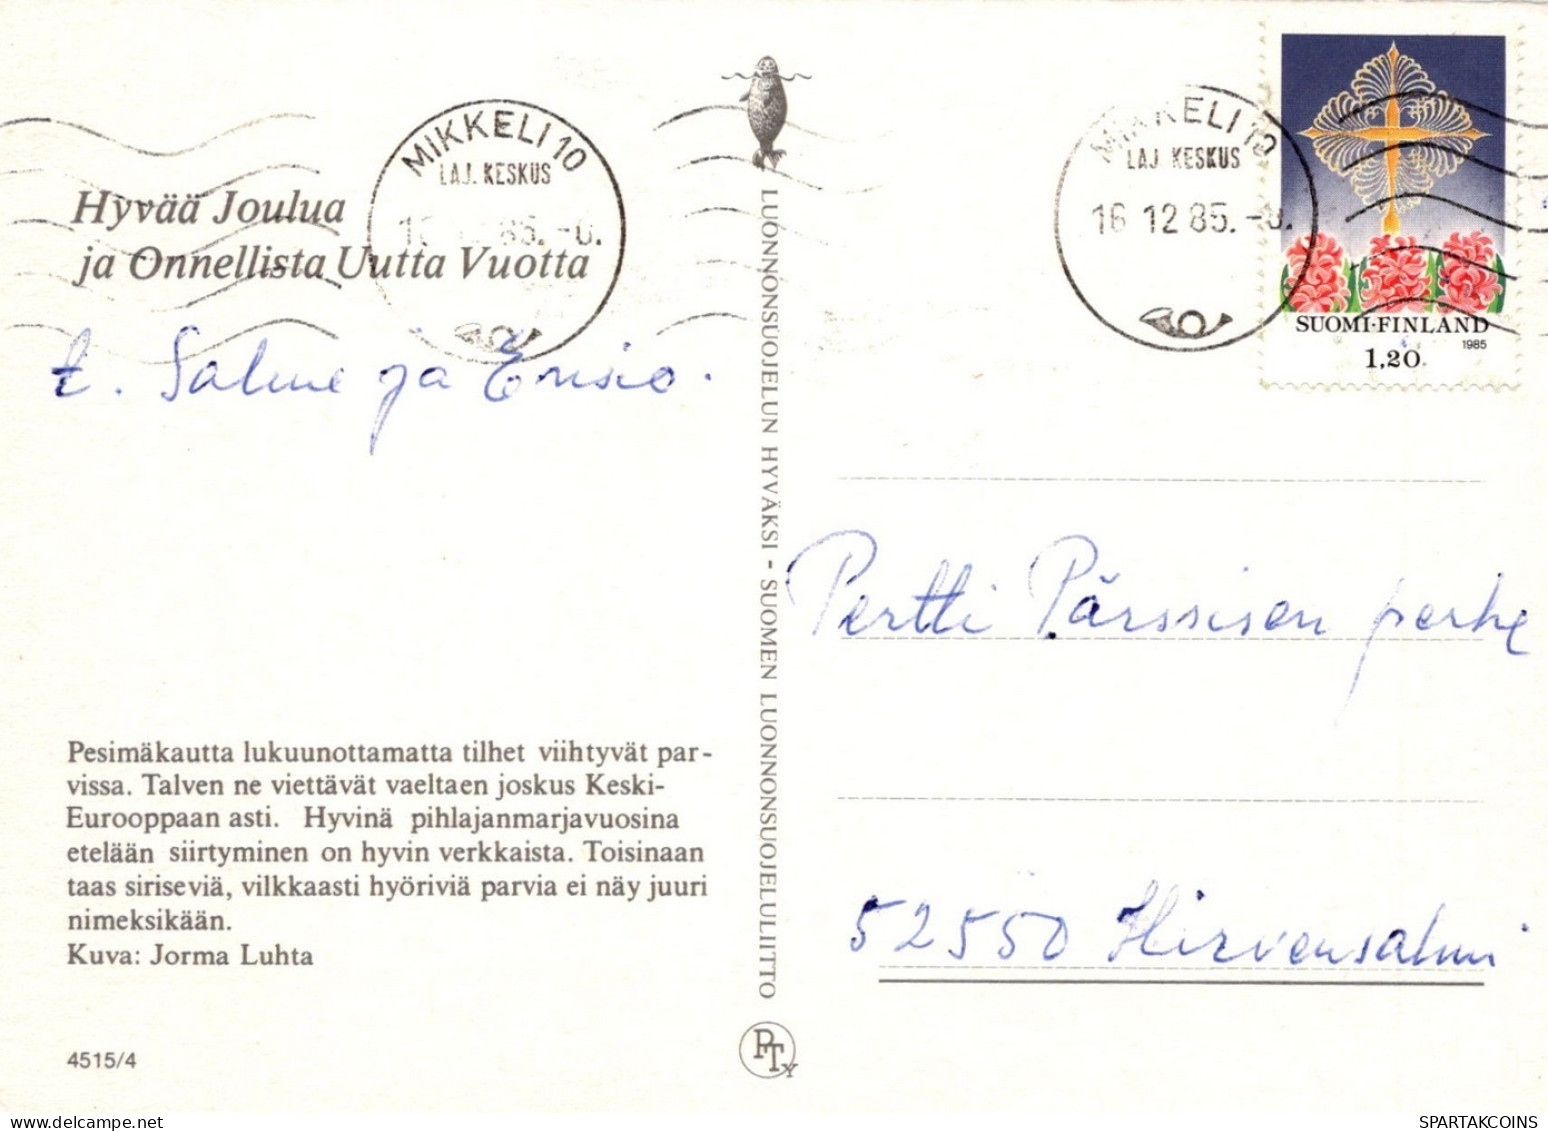 MIKKELI 10
LAJ. KESKUS
85.-0.
MIKKELI 10
LAJ. KESKUS
16 12 85.-0.
SUOMI-FINLAND
1985
1,20
Hyvää Joulua
ja Onnellista Uutta Vuotta
t. Salme ja Ensio.
LUONNONSUOJELUN HYVÄKSI - SUOMEN LUONNONSUOJELULIITTO
Pertti Pärssisen perhe
52550 Hirvensalmi
Pesimäkautta lukuunottamatta tilhet viihtyvät par-
vissa. Talven ne viettävät vaeltaen joskus Keski-
Eurooppaan asti. Hyvinä pihlajanmarjavuosina
etelään siirtyminen on hyvin verkkaista. Toisinaan
taas siriseviä, vilkkaasti hyöriviä parvia ei näy juuri
nimeksikään.
Kuva: Jorma Luhta
4515/4
PTy
SPARTAKCOINS